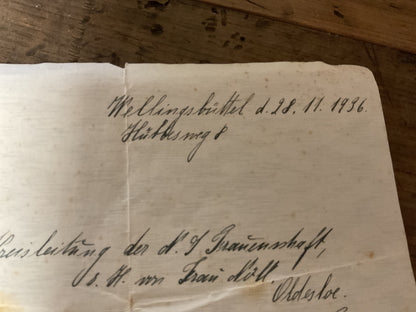 Wellingsbüttel d. 28. 11. 1936
Kreisleitung der N. S Frauenschaft,
z. H. von Frau Nöll.
Oldesloe.